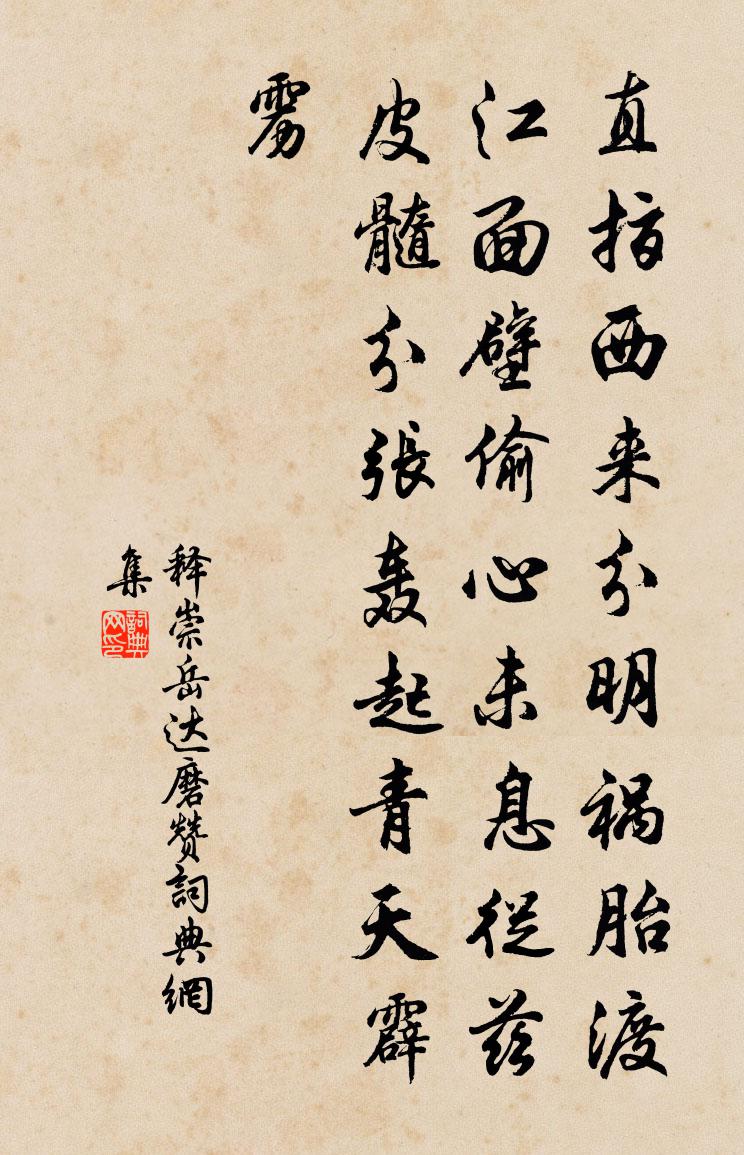 直指西来分明祸胎渡
江面壁偷心未息從兹
皮髓分張轰起青天霹
雳
释崇岳达磨赞詞典網
集
詞典
网印